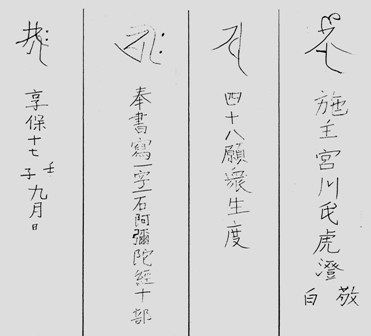 施主宮川氏虎澄
敬白
四十八願衆生度
奉書寫一字一石阿彌陀經十部
享保十七壬子九月日